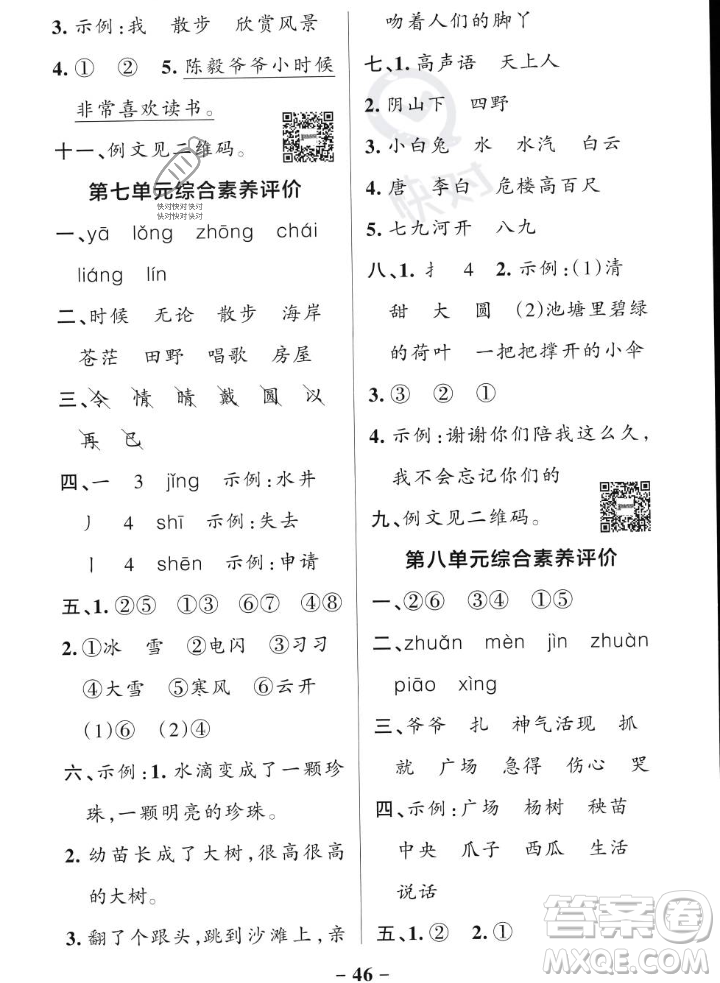 3. 示例:我 散步 欣赏风景
4. ① ② 5. 陈毅爷爷小时候
非常喜欢读书。
十一、例文见二维码。
第七单元综合素养评价
一、yā lǒng zhōng chái
liáng lín
二、时候 无论 散步 海岸
苍茫 田野 唱歌 房屋
三、令 情 晴 戴 圆 以
再 已
四、一 3 jǐng 示例:水井
丿 4 shī 示例:失去
丨 4 shēn 示例:申请
五、1. ②⑤ ①③ ⑥⑦ ④⑧
2. ①冰 雪 ②电闪 ③习习
④大雪 ⑤寒风 ⑥云开
(1)⑥ (2)④
六、示例:1. 水滴变成了一颗珍
珠,一颗明亮的珍珠。
2. 幼苗长成了大树,很高很高
的大树。
3. 翻了个跟头,跳到沙滩上,亲
吻着人们的脚丫
七、1. 高声语 天上人
2. 阴山下 四野
3. 小白兔 水 水汽 白云
4. 唐 李白 危楼高百尺
5. 七九河开 八九
八、1. 扌 4 2. 示例:(1)清
甜 大 圆 (2)池塘里碧绿
的荷叶 一把把撑开的小伞
3. ③ ② ①
4. 示例:谢谢你们陪我这么久,
我不会忘记你们的
九、例文见二维码。
第八单元综合素养评价
一、②⑥ ③④ ①⑤
二、zhuǎn mèn jìn zhuàn
piāo xìng
三、爷爷 扎 神气活现 抓
就 广场 急得 伤心 哭
四、示例:广场 杨树 秧苗
中央 爪子 西瓜 生活
说话
五、1. ② 2. ①
– 46 –
快对
快对快对快对
快对快对
答案圈
MXQE.COM